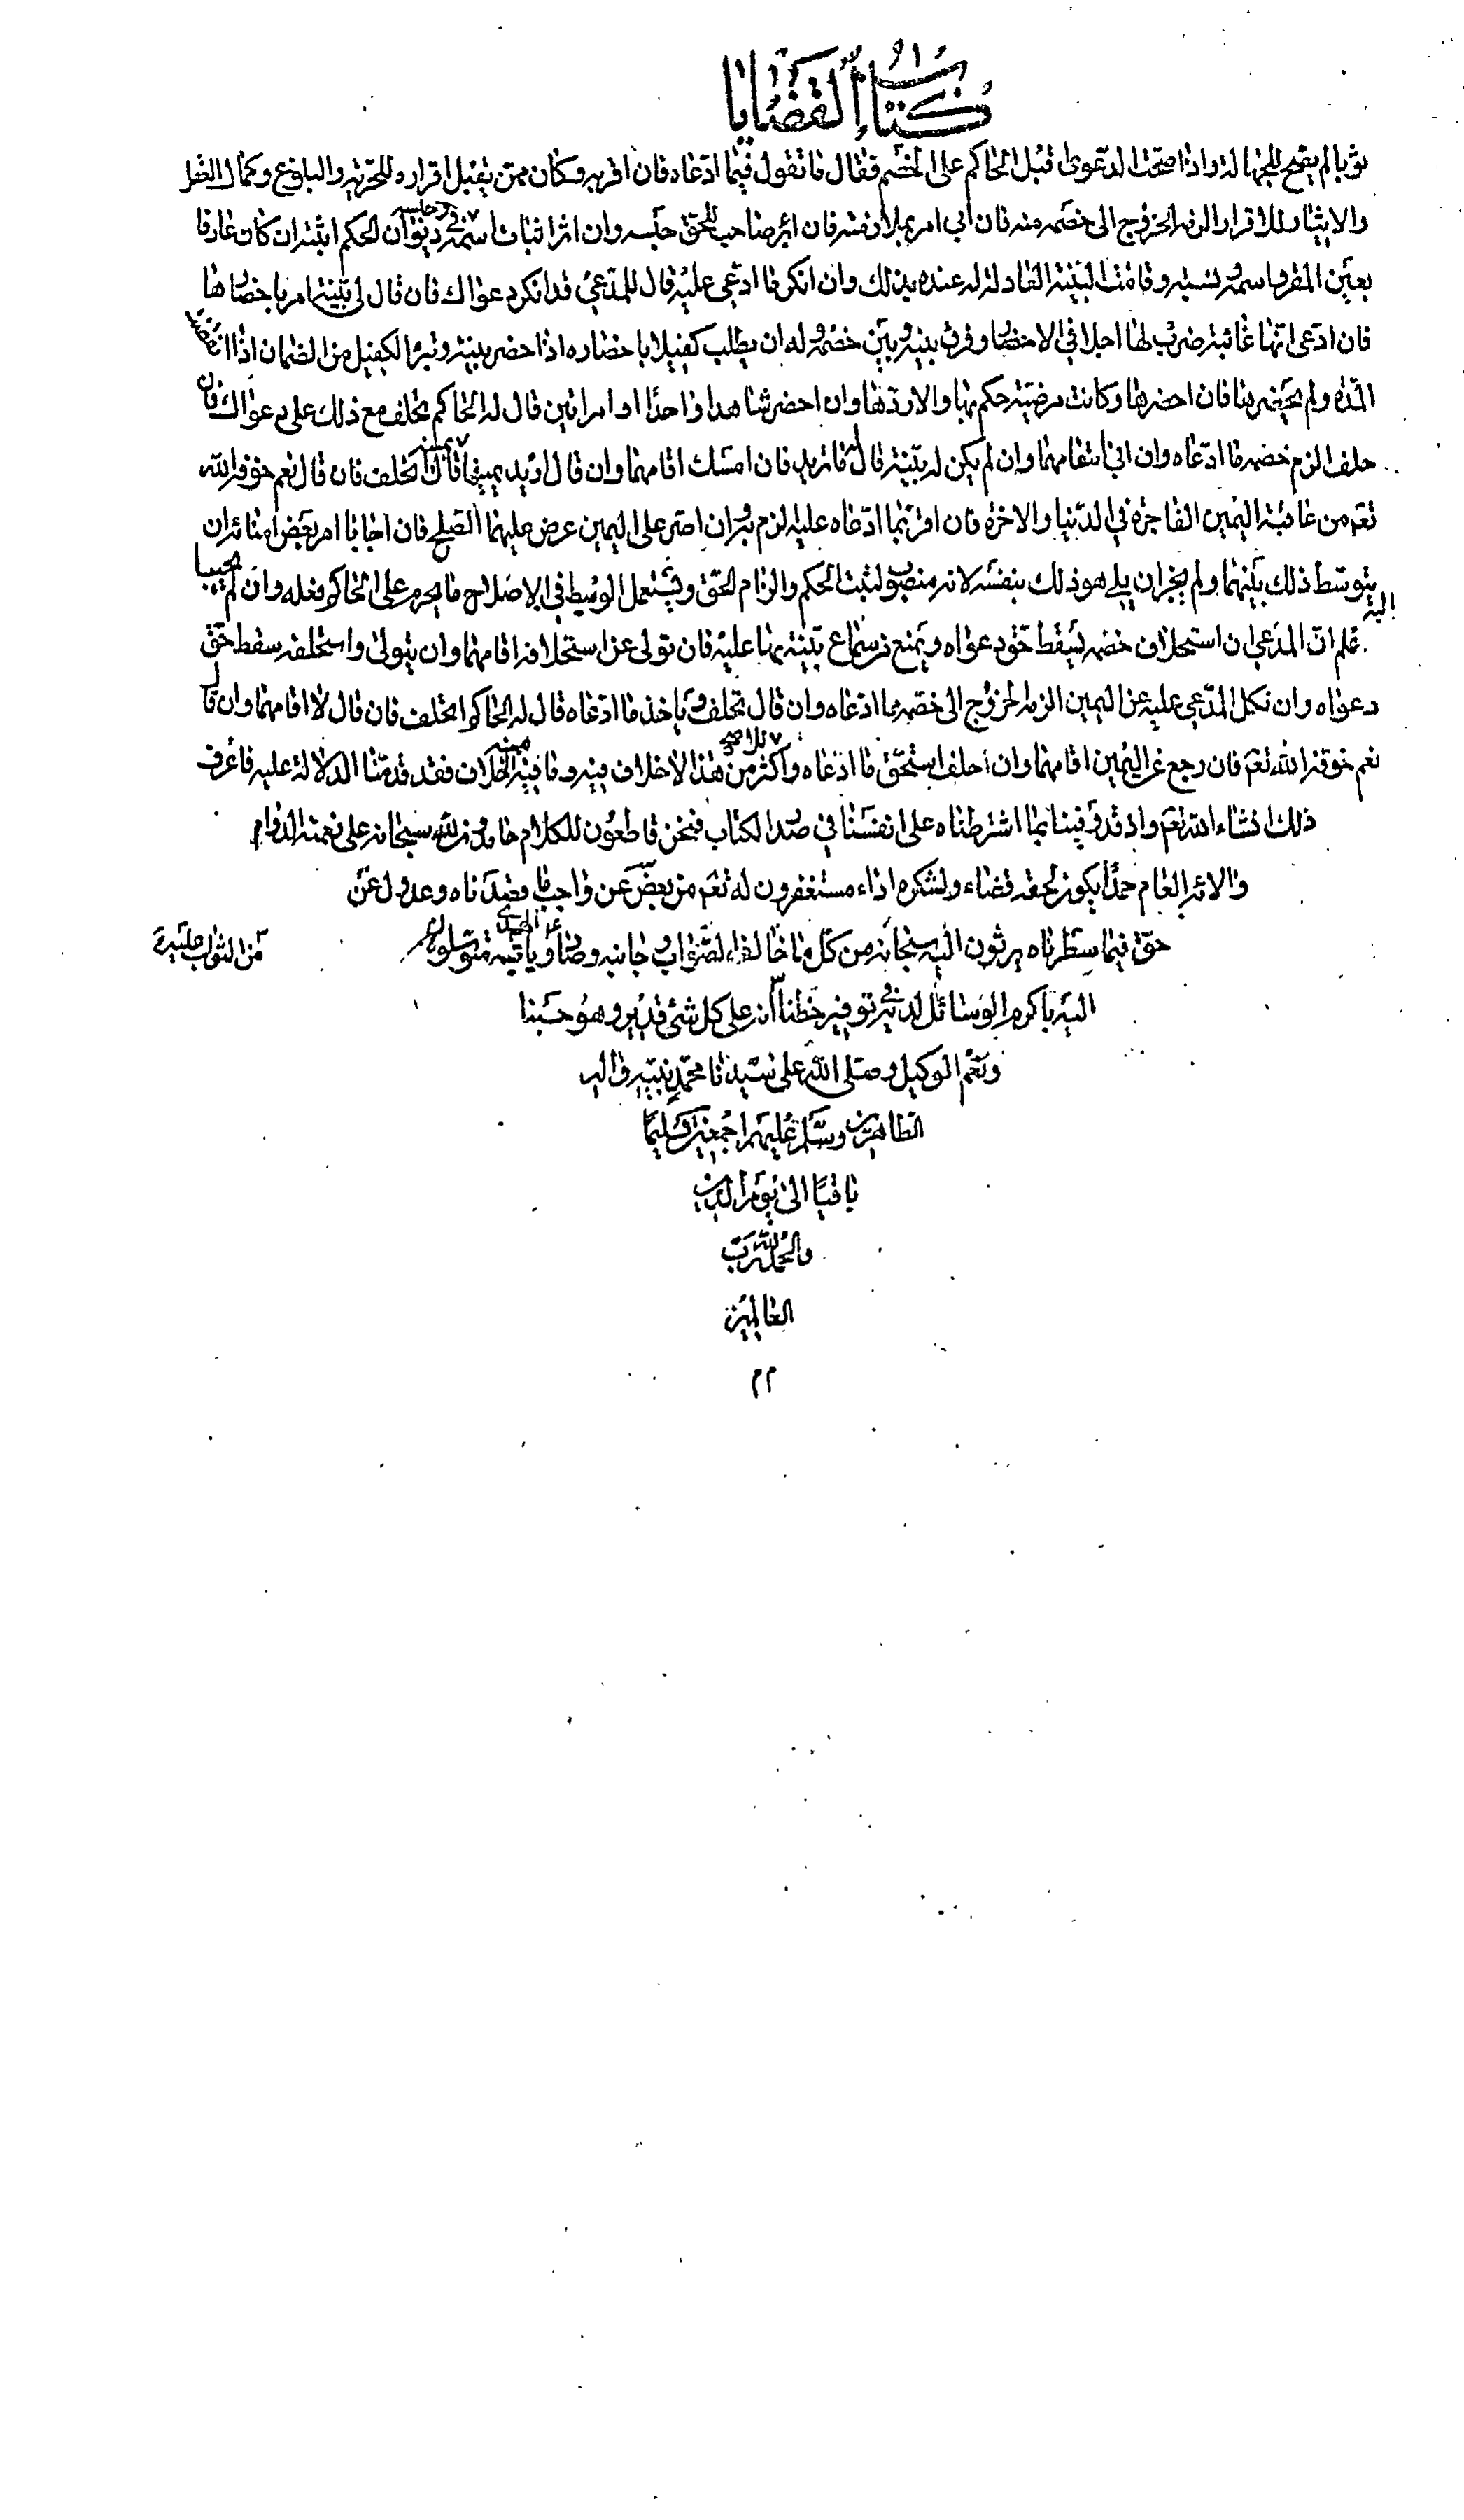 كتاب القضايا
ثوبا لم يصح للجهالة واذا صحت الدعوى قبل الحاكم على الخصم فقال ما تقول فيما ادعاه فان اقر به وكان ممن يقبل اقراره للحرية والبلوغ وكمال العقل
والايثار للاقرار الزمه الخروج الى خصمه منه فان ابى امر بملازمته فان اثر صاحب الحق حبسه حبسه وان اثر اثبات اسمه في ديوان الحكم اثبته ان كان عارفا
بعين المقر واسمه ونسبه او قامت البينة العادلة له عنده بذلك وان انكر ما ادعى عليه قال للمدعي قد انكر دعواك فان قال لي بينة امر باحضارها
فان ادعى انها غائبة ضرب لها اجلا في الاحضار وفرق بينه وبين خصمه وله ان يطلب كفيلا باحضاره اذا حضر بينته ويبرأ الكفيل من الضمان اذا انقضت
المدة ولم يحضرها فان احضرها وكانت مرضية حكم بها والا ردها وان احضر شاهدا واحدا او امراتين قال له الحاكم تحلف مع ذلك على دعواك فان
حلف الزم خصمه ما ادعاه وان ابى اقامهما وان لم يكن له بينة قال له ما تريد فان امسك اقامهما وان قال اريد يمينه قال اتحلف فان قال نعم خوفه الله
تعم من عاقبة اليمين الفاجرة في الدنيا والاخرة فان اقر بما ادعاه عليه لزم به وان اصر على اليمين عرض عليهما الصلح فان اجابا امر بعض امنائه ان
يتوسط ذلك بينهما ولم يجز ان يلي هو ذلك بنفسه لانه منصوب لثبت الحكم والزام الحق ويستعمل الوسيط في الاصلاح ما يحرم على الحاكم فعله وان لم يجيبا
اليه
علم ان المدعي ان استحلاف خصمه يسقط حق دعواه ويمنع من سماع بينة بها عليه فان تولى عن استحلافه اقامهما وان يتولى واستحلفه سقط حق
دعواه وان نكل المدعى عليه عن اليمين الزمه الخروج الى خصمه مما ادعاه وان قال يحلف وياخذ ما ادعاه قال له الحاكم اتحلف فان قال لا اقامهما وان قال
نعم خوفه الله تعم فان رجع عن اليمين اقامهما وان حلف استحق ما ادعاه واكثر من هذا لا خلاف فيه وما فيه الخلاف فقد قدمنا الدلالة عليه فاعرف
ذلك انشاء الله تعم واذ قد وفينا بما اشترطناه على انفسنا في صدر الكتاب فنحن قاطعون للكلام حامدون لله سبحانه على نعمته الدوام
والائه العام حمدا يكون لحقه قضاء ولشكره اداء مستغفرون له تعم من بعض عن واجب ما قصدناه وعدول عن
حق فيما سطرناه بريئون اليه سبحانه من كل ما خالف الصواب جانبه متوسلون
من الثواب عليه
اليه باكرم الوسائل لديه في توفير حظنا انه على كل شئ قدير وهو حسبنا
ونعم الوكيل وصلى الله على سيدنا محمد نبيه واله
الطاهرين وسلم عليهم اجمعين تسليما
باقيا الى يوم الدين
والحمد لله رب
العالمين
م م